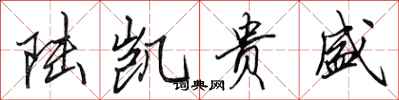 陆凯贵盛
词典网